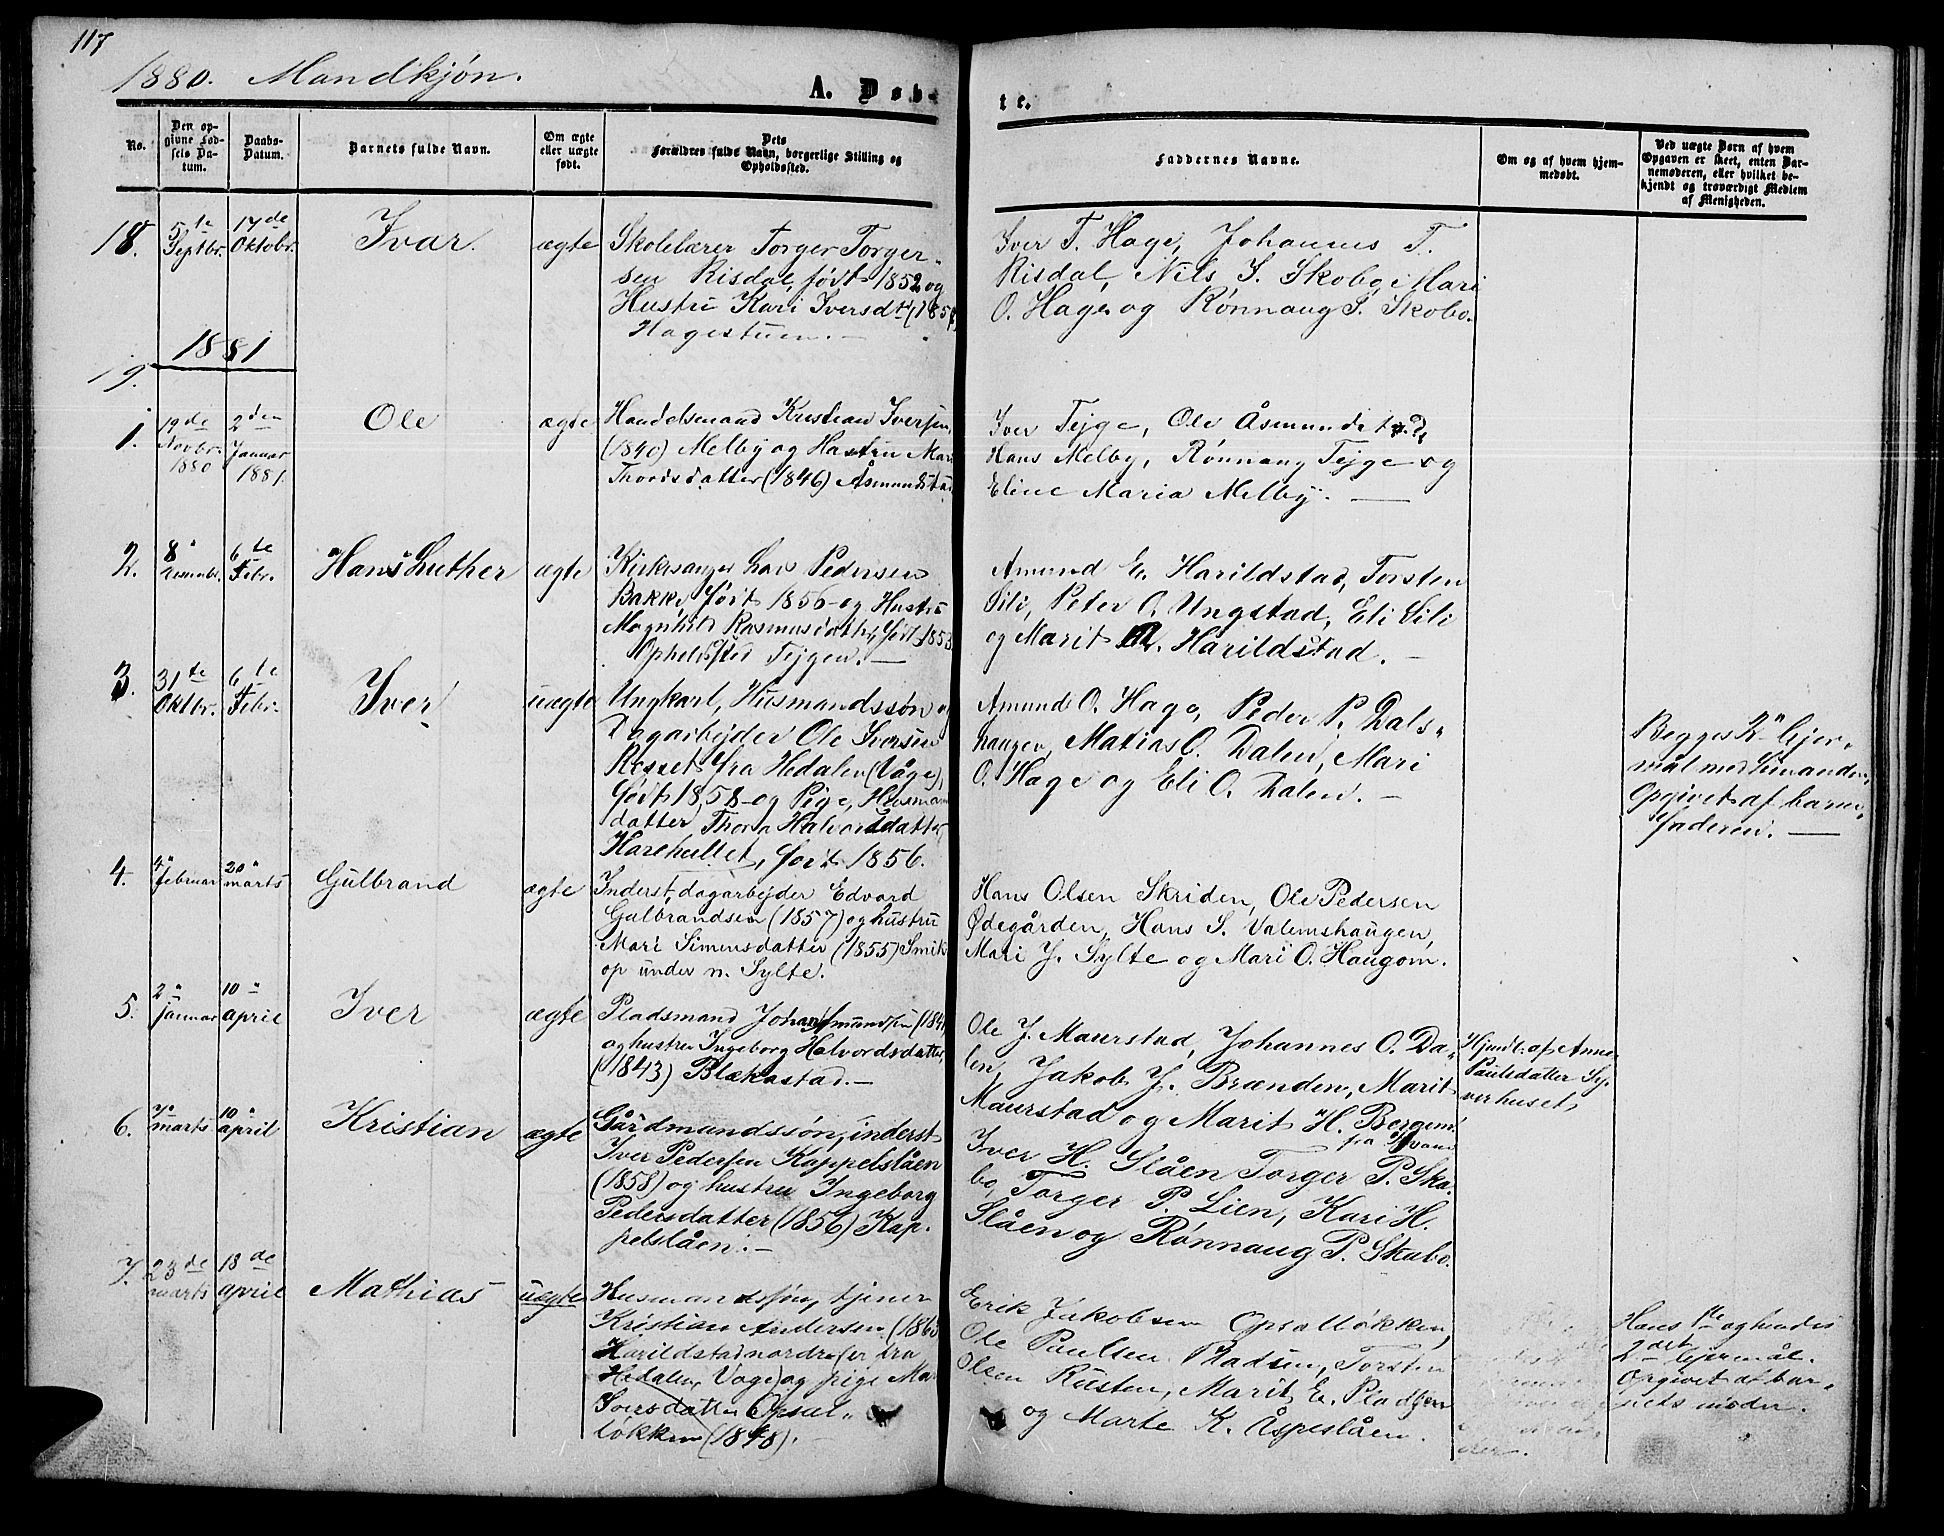 117
1880. Mandkjøn.
A. Døb-
te.
No.
Den op-
givne Fød-
sels Da-
tum.
Daabs-
Datum.
Barnets fulde Navn.
Om ægte
eller uægte
født.
Dets
Forældres fulde Navn, borgerlige Stilling og
Opholdssted.
Faddernes Navne.
Om og af hvem hjem-
medøbt.
Ved uægte Børn af hvem
Opgaven er skeet, enten Bar-
nemoderen, eller hvilket be-
kjendt og troværdigt Medlem
af Menigheden.
18.
5te
Septbr.
17de
Oktobr.
Ivar.
ægte
Skolelærer Torger Torger-
sen Risdal, født 1852 og
Hustru Kari Iversdtr (185
Hagestuen. —
Iver T. Hage, Johannes T.
Risdal, Nils S. Skobo, Mari
O. Hage og Rønnaug S. Skobo.
1881
19.
1.
19de
Novbr.
1880
2den
Januar
1881.
Ole
ægte
Handelsmand Kristian Iversen,
(1840) Melby og Hustru Mari
Thordsdatter (1846) Åsmundstad
Iver Tejge, Ole Åsmundstad,
Hans Melby, Rønnaug Tejge og
Eline Maria Melby. —
2.
8"
6te
Febr.
Hans Luther
ægte
Kirkesanger Lars Pedersen
Bakke, født 1856 og Hustru
Magnhild Rasmusdatter, født 1853
Opholdssted Tejgen. —
Amund E. Harildstad, Torsten
Sili, Peter O. Ungstad, Eli Sili
og Marit A. Harildstad. —
3.
31te
Oktbr.
6te
Febr.
Iver
uægte
Ungkarl, Husmandssøn og
Dagarbejder Ole Iversen
Resset fra Hedalen (Våge),
født 1858 og Pige, Husmands
datter Thora Halvorsdatter
Harehullet, født 1856.
Amund O. Hage, Peder P. Dals-
haugen, Matias O. Dalen, Mari
O. Hage og Eli O. Dalen. —
Begges 2" lejer-
mål med hinanden,
opgivet af barne-
faderen. —
4.
4"
februar
20"
marts
Gulbrand
ægte
Inderst, dagarbejder Edvard
Gulbrandsen (1857) og hustru
Mari Simensdatter (1855) Smik-
op under n. Sylte.
Hans Olsen Skriden, Ole Pedersen
Ødegården, Hans S. Valemshaugen,
Mari J. Sylte og Mari O. Haugom.
5.
2"
januar
10"
april
Iver
ægte
Pladsmand Johan Amundsen (184
og hustru Ingeborg Halvordsdatter,
(1843) Blekastad. —
Ole J. Maurstad, Johannes O. Da-
len, Jakob J. Brænden, Marit
Maurstad og Marit H. Bergem
Hjemdb. af Anne
Paulsdatter Se-
verhuset,
6.
7"
marts
10"
april
Kristian
ægte
Gårdmandssøn, inderst
Iver Pedersen Kappelslåen
(1858) og hustru Ingeborg
Pedersdatter (1856) Kap-
pelslåen. —
fra
Iver H. Slåen Torger P. Ska-
bo, Torger P. Lien, Kari H.
Slåen og Rønnaug P. Skabo.
7.
23de
marts
18de
april
Mathias
uægte
Husmandssøn, tjener
Kristian Andersen (1863
Harildstad nordre (er fra
Hedalen, Våge) og pige Mari
Iversdatter Opsal-
løkken (1848). —
Erik Jakobsen Opsalløkken,
Ole Paulsen Pladsen, Torsten
Olsen Rusten, Marit E. Pladsen
og Marte K. Åspeslåen.
Hans 1ste og hendes
2det lejermål.
Opgivet af bar-
nets moder.